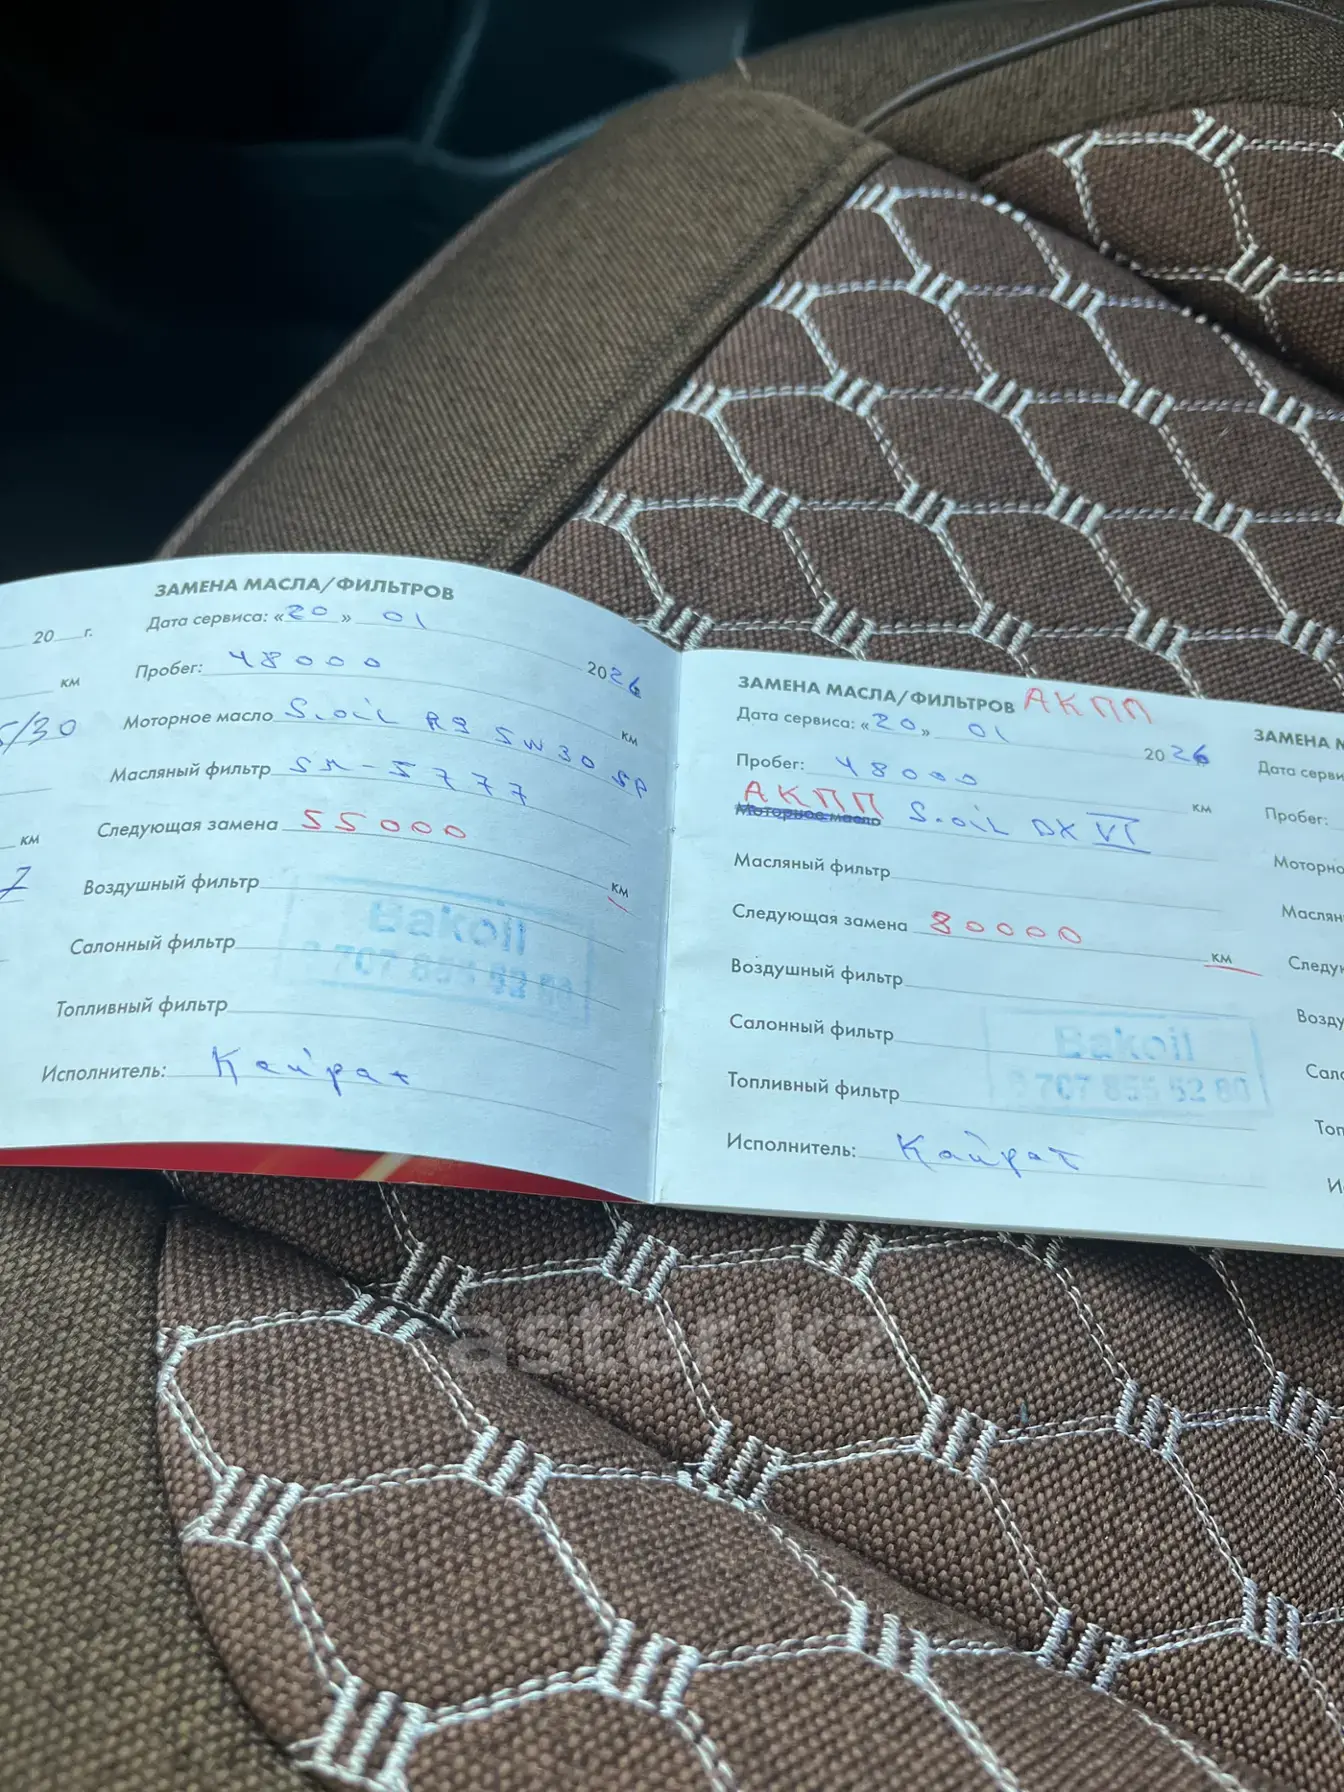 20 г.
км
5/30
км
7
ЗАМЕНА МАСЛА/ФИЛЬТРОВ
Дата сервиса: «20» 01 2026
Пробег: 48000 км
Моторное масло S.oiL R9 5W30 SP
Масляный фильтр SM-5777
Следующая замена 55000 км
Воздушный фильтр
Салонный фильтр
Топливный фильтр
Bakoil
8 707 855 52 80
Исполнитель: Кайрат
ЗАМЕНА МАСЛА/ФИЛЬТРОВ АКПП
Дата сервиса: «20» 01 2026
Пробег: 48000 км
АКПП
Моторное масло S.oiL DX VI
Масляный фильтр
Следующая замена 80000 км
Воздушный фильтр
Салонный фильтр
Топливный фильтр
Bakoil
8 707 855 52 80
Исполнитель: Кайрат
ЗАМЕНА М
Дата серви
Пробег:
Моторно
Маслян
Следу
Возду
Сало
Топ
И
aster.kz